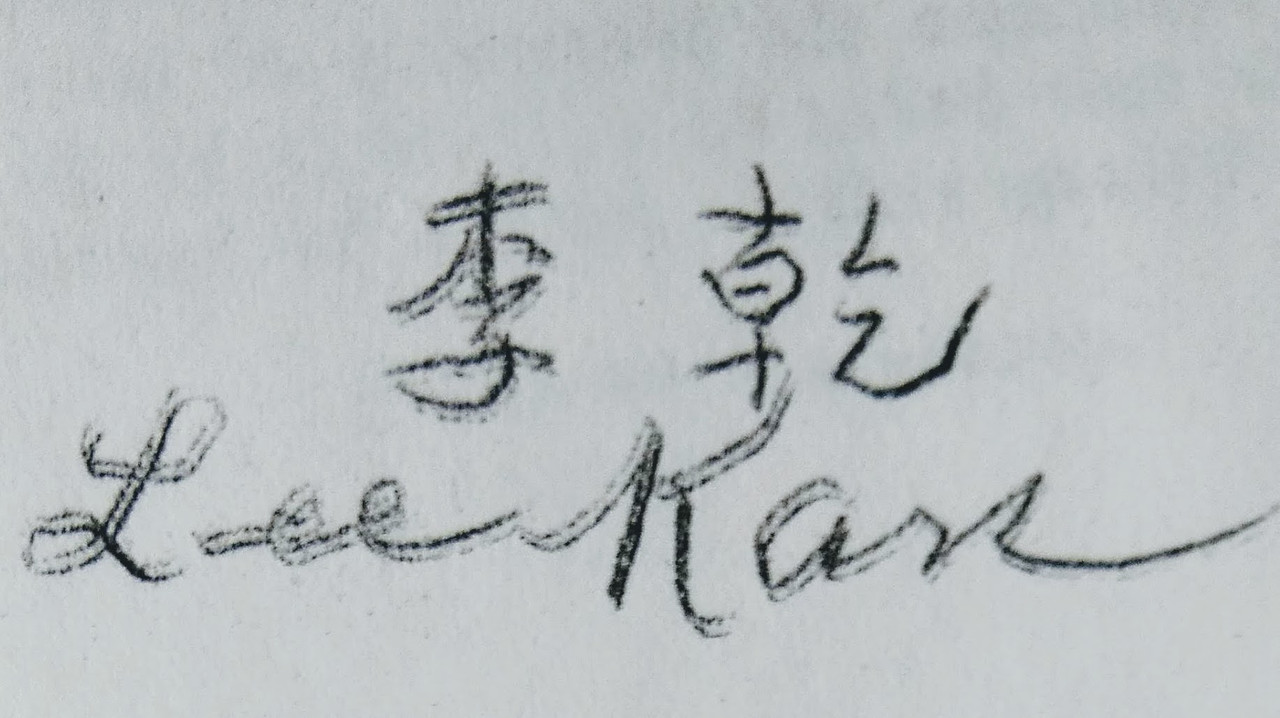 李乾
Lee Kan